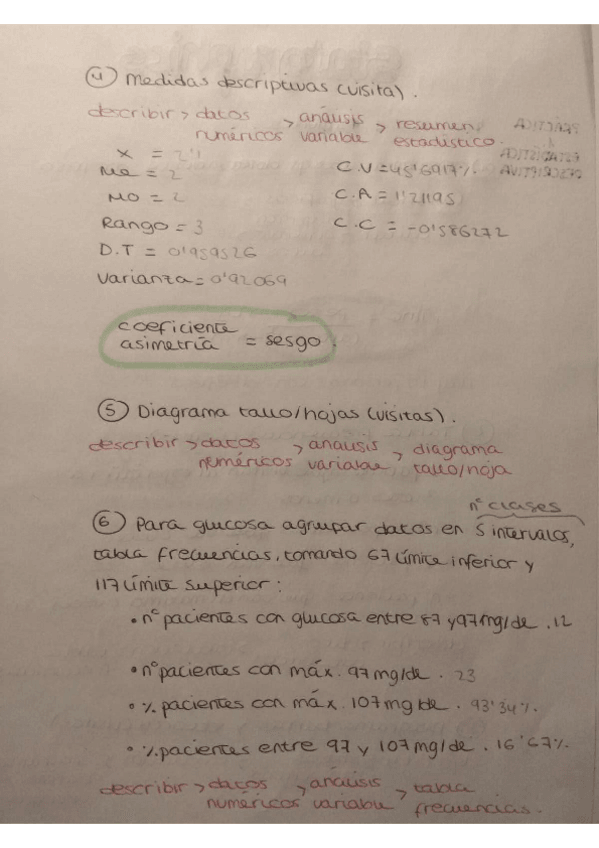 ④ Medidas descriptivas (visita).
describir > datos numéricos > análisis variable > resumen estadístico.
x̄ = 2'1
Me = 2
Mo = 2
Rango = 3
D.T = 0'959526
Varianza = 0'92069
C.V = 45'6917%
C.A = 1'21195
C.C = -0'586272
coeficiente
asimetría = sesgo.
⑤ Diagrama tallo/hojas (visitas).
describir > datos numéricos > analisis variable > diagrama tallo/hoja
nº clases
⑥ Para glucosa agrupar datos en 5 intervalos,
tabla frecuencias, tomando 67 límite inferior y
117 límite superior:
• nº pacientes con glucosa entre 87 y 97 mg/de. 12
• nº pacientes con máx. 97 mg/de. 23
• % pacientes con máx. 107 mg/de. 93'34%.
• % pacientes entre 97 y 107 mg/de. 16'67%.
describir > datos numéricos > análisis variable > tabla frecuencias.